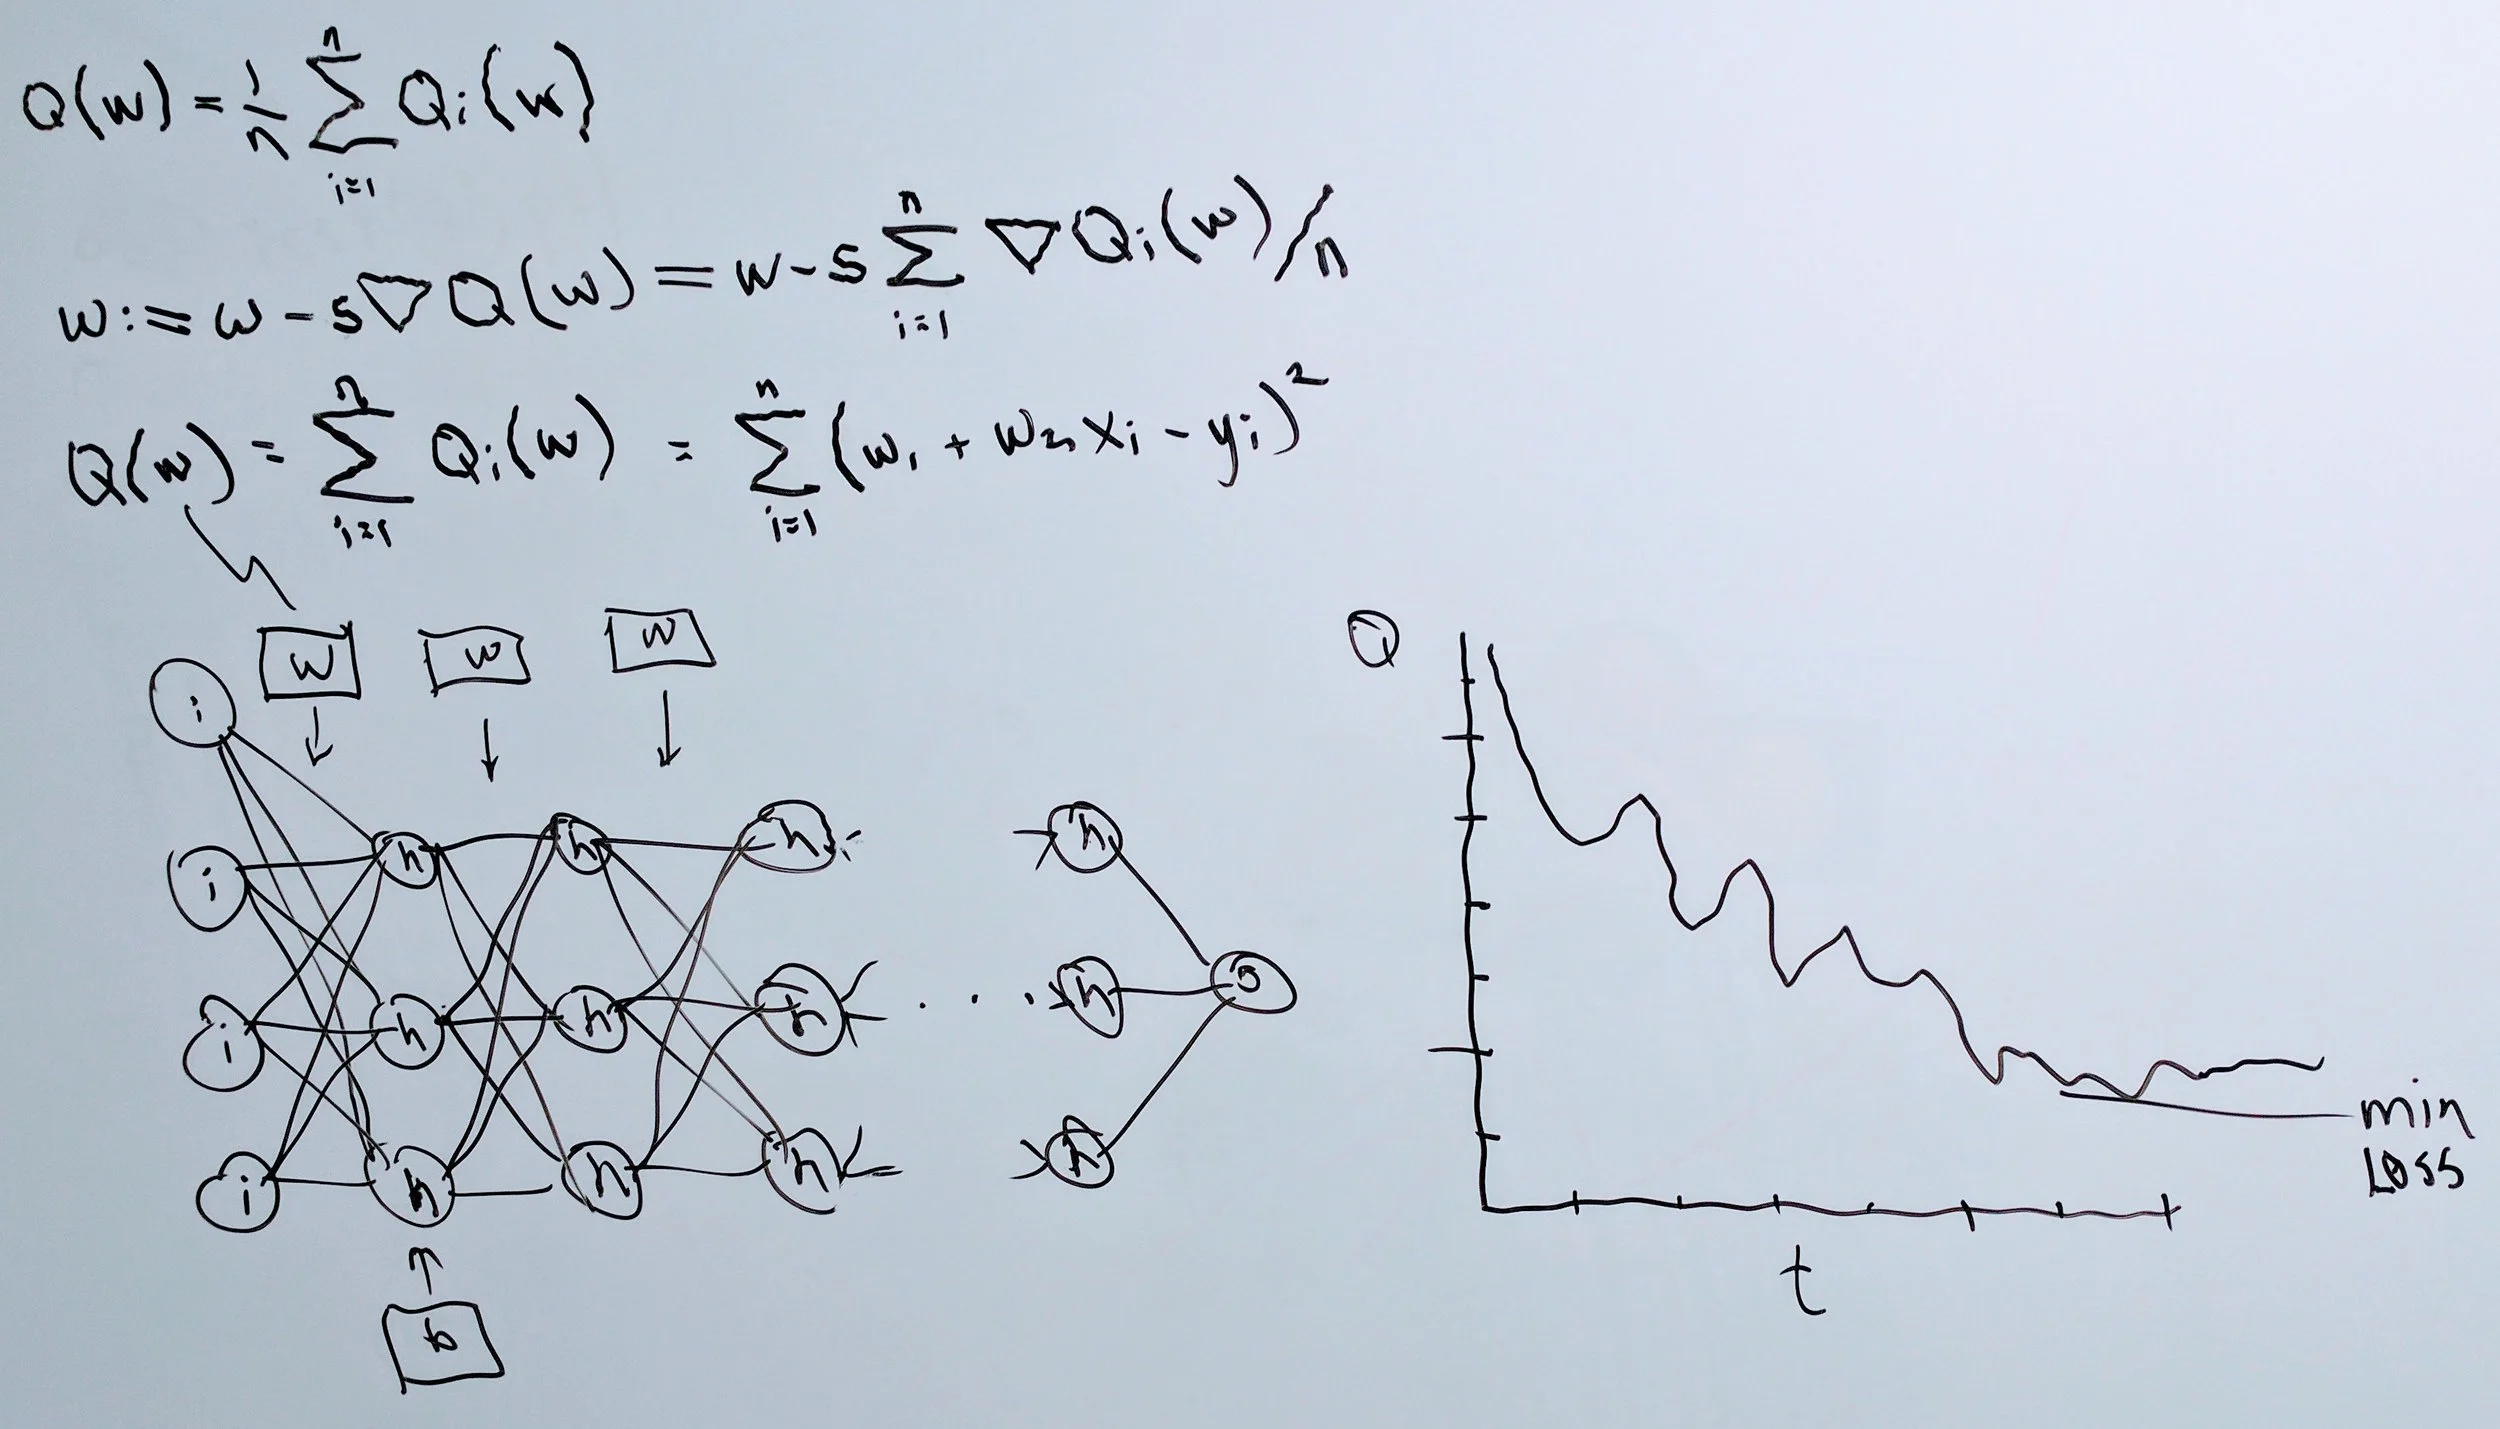 Q(w) = 1/n ∑ⁿᵢ₌₁ Qi(w)
w := w - s∇Q(w) = w - s ∑ⁿᵢ₌₁ ∇Qi(w)/n
Q(w) = ∑ⁿᵢ₌₁ Qi(w) = ∑ⁿᵢ₌₁ (w₁ + w₂xi - yi)²
w w w
i
i
i
i
h h h h
h h h h
h h h h
o
b
Q
t
min
Loss